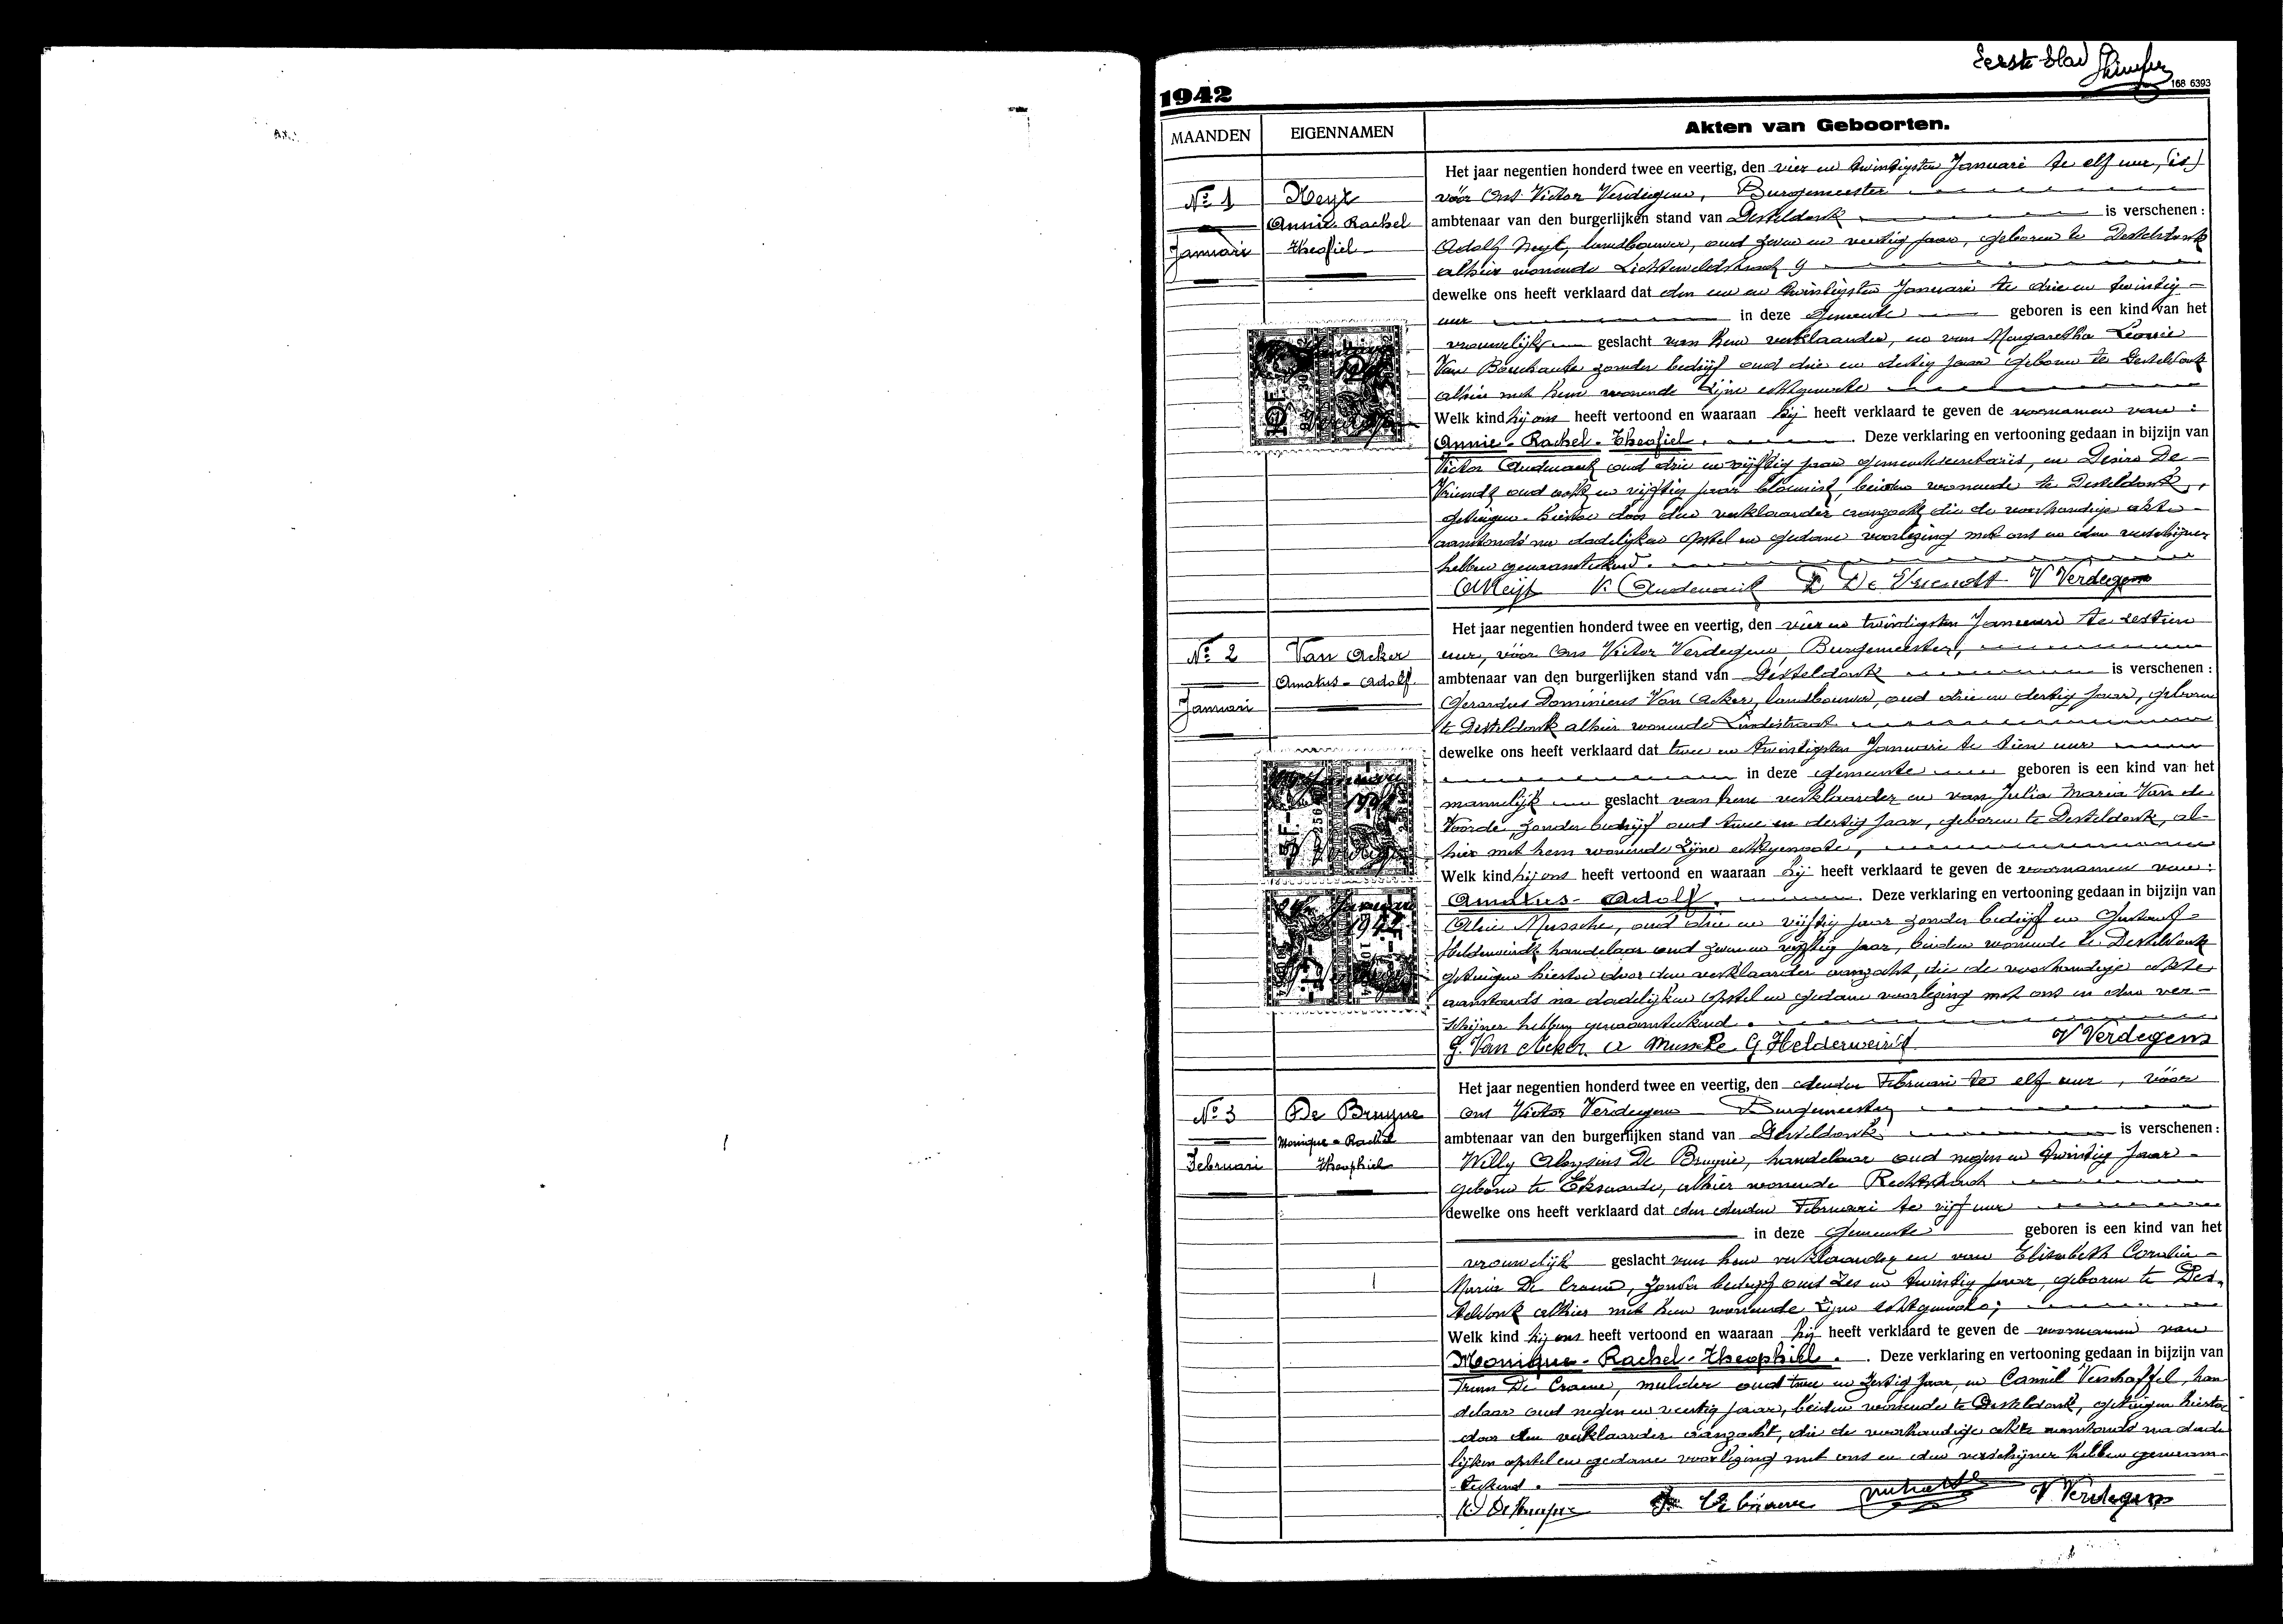 Eerste blad
168 6393
1942
MAANDEN
EIGENNAMEN
Akten van Geboorten.
Nº 1
Januari
Neyt
Annie-Rachel
Theofiel
Het jaar negentien honderd twee en veertig, den vier en twintigsten Januari te elf uur,
vóór Ons Victor Verdegem, Burgemeester
ambtenaar van den burgerlijken stand van Desteldonk is verschenen :
Adolf Neyt, landbouwer, oud zeven en veertig jaar, geboren te Desteldonk
alhier wonende Lichtveldstraat 9
dewelke ons heeft verklaard dat den een en twintigsten Januari te drie en twintig
uur in deze gemeente geboren is een kind van het
vrouwelijk geslacht van hem verklaarder, en van Margaretha Leonie
Van Bouchaute zonder bedrijf oud drie en dertig jaar geboren te Desteldonk
alhier met hem wonende zijne echtgenoote
Welk kind hij ons heeft vertoond en waaraan hij heeft verklaard te geven de voornamen van :
Annie - Rachel - Theofiel. Deze verklaring en vertooning gedaan in bijzijn van
Victor Audenaert oud drie en vijftig jaar gemeentesecretaris, en Desire De
Vriendt oud acht en vijftig jaar bloemist, beiden wonende te Desteldonk,
getuigen hiertoe door den verklaarder aanzocht, die de voorhandige akte
aanstonds na dadelijken opstel en gedane voorlezing met ons en den verschijner
hebben genaamteekend.
A Neyt V. Audenaert D De Vriendt V Verdegem
Nº 2
Januari
Van Acker
Amatus - Adolf
Het jaar negentien honderd twee en veertig, den vier en twintigsten Januari te zestien
uur, vóór Ons Victor Verdegem Burgemeester,
ambtenaar van den burgerlijken stand van Desteldonk is verschenen :
Gerardus Dominicus Van Acker, landbouwer, oud drie en dertig jaar, geboren
te Desteldonk alhier wonende Lindestraat
dewelke ons heeft verklaard dat twee en twintigsten Januari te tien uur
in deze gemeente geboren is een kind van het
mannelijk geslacht van hem verklaarder en van Julia Maria Van de
Voorde, zonder bedrijf oud twee en dertig jaar, geboren te Desteldonk, al-
hier met hem wonende zijne echtgenoote,
Welk kind hij ons heeft vertoond en waaraan hij heeft verklaard te geven de voornamen van :
Amatus - Adolf. Deze verklaring en vertooning gedaan in bijzijn van
Mussche, oud drie en vijftig jaar zonder bedrijf en Gustaaf
Helderweirdt handelaar oud zeven en vijftig jaar, beiden wonende te Desteldonk
getuigen hiertoe door den verklaarder aanzocht, die de voorhandige akte,
aanstonds na dadelijken opstel en gedane voorlezing met ons en den ver-
schijner hebben genaamteekend.
G. Van Acker. A Mussche G Helderweirdt V Verdegem
Nº 3
Februari
De Bruyne
Monique - Rachel
Theophiel
Het jaar negentien honderd twee en veertig, den derden Februari te elf uur, vóór
ons Victor Verdegem Burgemeester
ambtenaar van den burgerlijken stand van Desteldonk is verschenen :
Willy Aloysius De Bruyne, handelaar oud negen en twintig jaar
geboren te Eksaarde, alhier wonende Rechtstraat
dewelke ons heeft verklaard dat den derden Februari te vijf uur
in deze gemeente geboren is een kind van het
vrouwelijk geslacht van hem verklaarder en van Elisabeth Cornelia
Maria De Craene, zonder bedrijf oud zes en twintig jaar, geboren te Des-
teldonk alhier met hem wonende zijne echtgenoote;
Welk kind hij ons heeft vertoond en waaraan hij heeft verklaard te geven de voornamen van
Monique - Rachel - Theophiel. Deze verklaring en vertooning gedaan in bijzijn van
De Craene, mulder oud twee en zestig jaar, en Camiel Verschaffel, han
delaar oud negen en veertig jaar, beiden wonende te Desteldonk, getuigen hiertoe
door den verklaarder aanzocht, die de voorhandige akte aanstonds na dade
lijken opstel en gedane voorlezing met ons en den verschijner hebben genaam-
teekend.
W De Bruyne V Verdegem